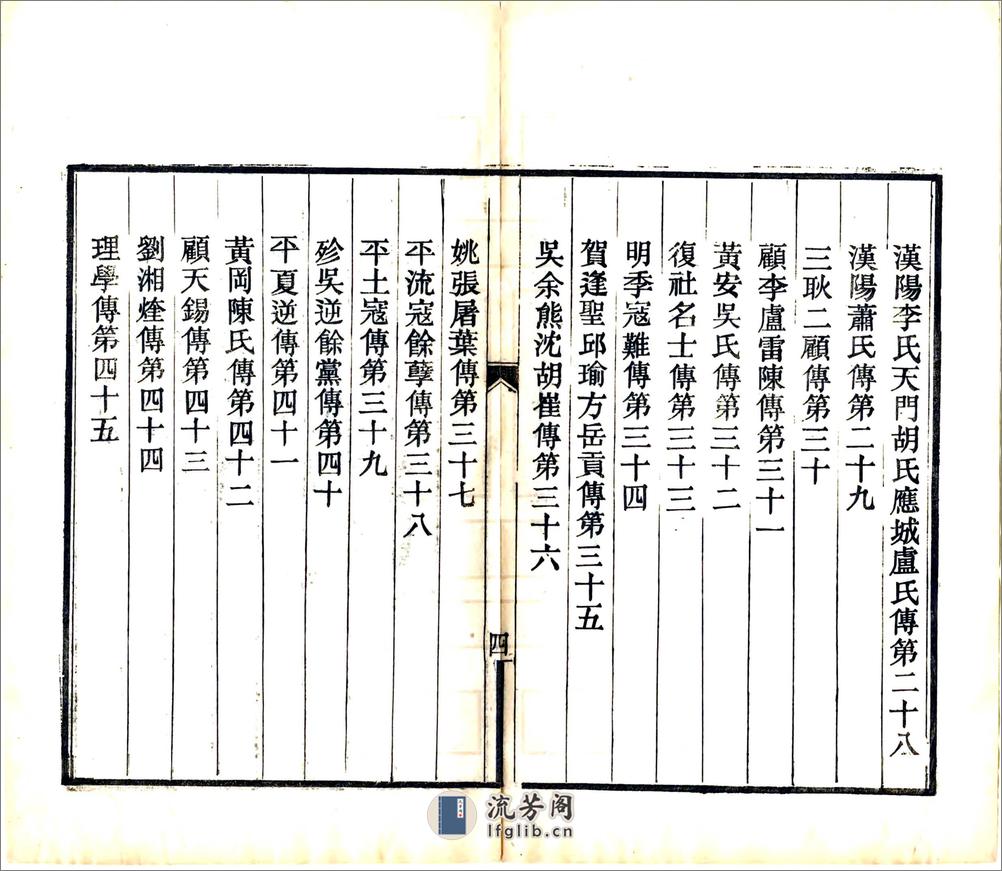 漢陽李氏天門胡氏應城盧氏傳第二十八
漢陽蕭氏傳第二十九
三耿二顧傳第三十
顧李盧雷陳傳第三十一
黃安吳氏傳第三十二
復社名士傳第三十三
明季寇難傳第三十四
賀逢聖邱瑜方岳貢傳第三十五
吳余熊沈胡崔傳第三十六
四
姚張屠葉傳第三十七
平流寇餘孽傳第三十八
平土寇傳第三十九
殄吳逆餘黨傳第四十
平夏逆傳第四十一
黃岡陳氏傳第四十二
顧天錫傳第四十三
劉湘煃傳第四十四
理學傳第四十五
流芳阁
lfglib.cn